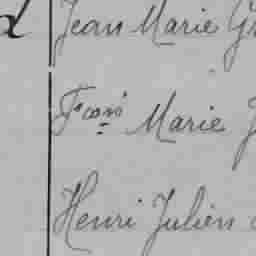 Jean Marie
Fcois Marie
Henri Julien